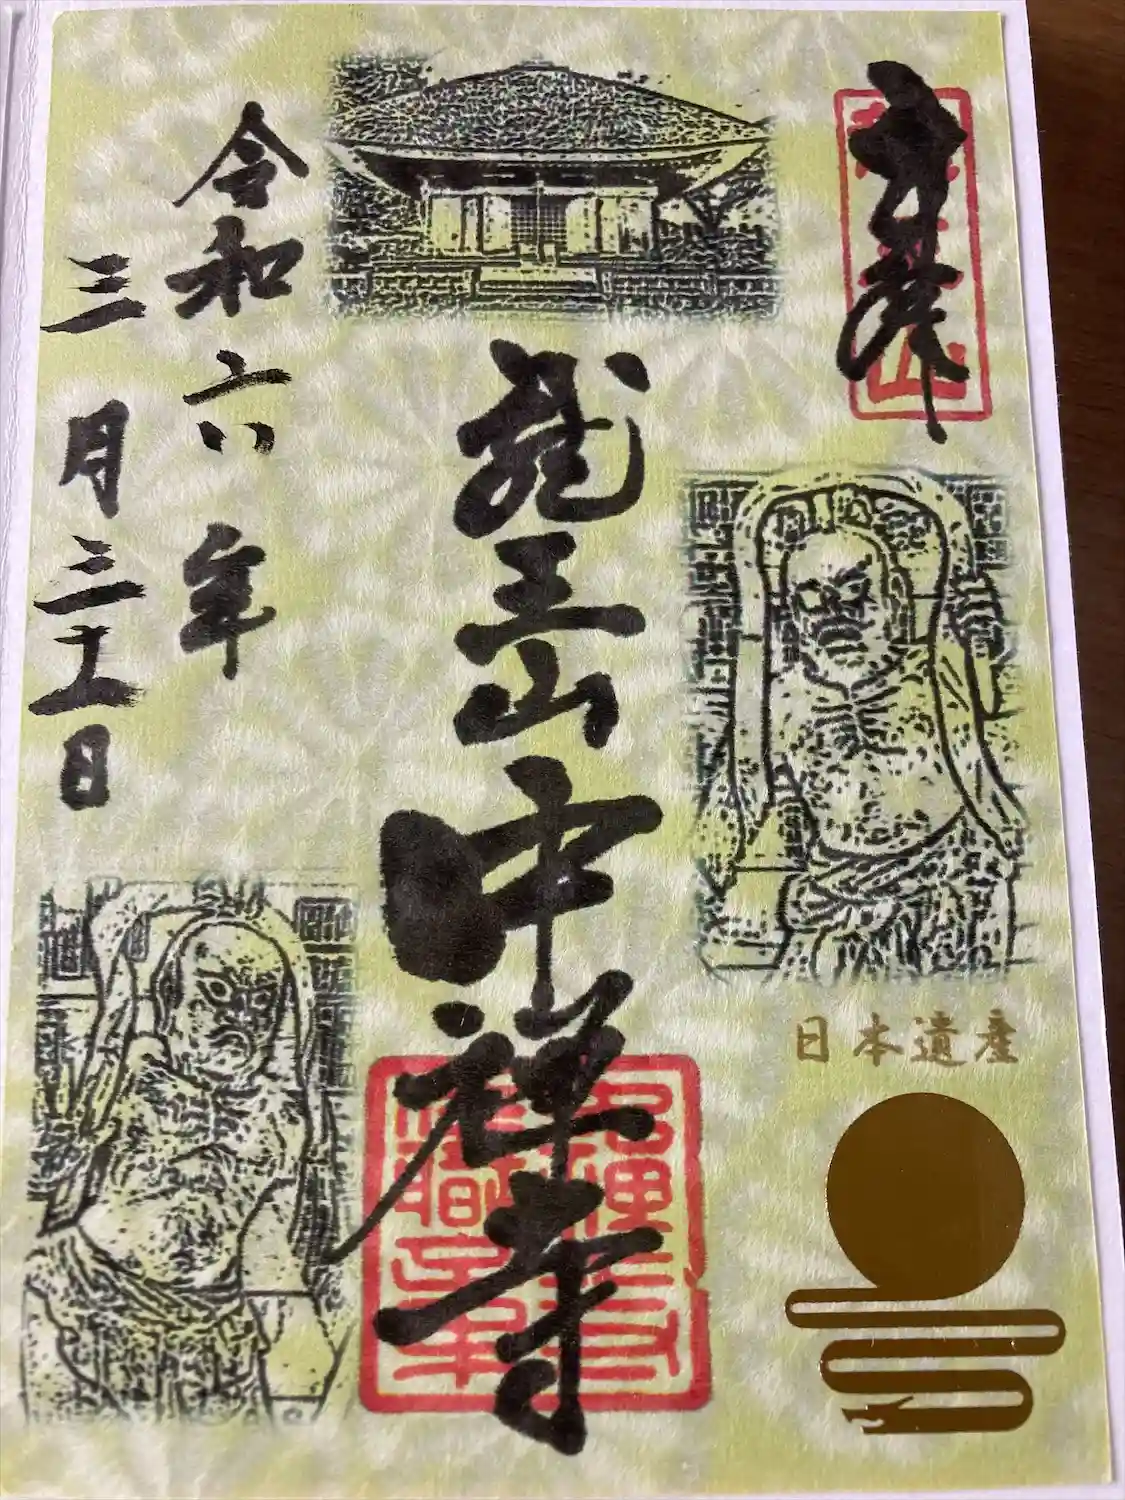 奉拝
龍王山
中禅寺
令和六年
三月三十一日
日本遺産